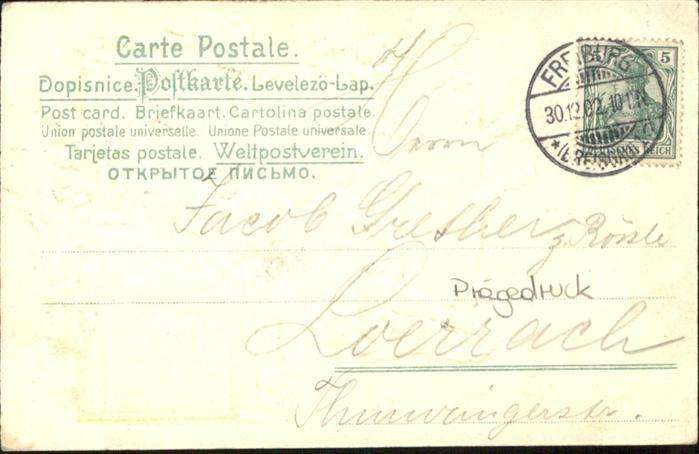 Carte Postale.
Dopisnice. Postkarte. Levelező-Lap.
Post card. Briefkaart. Cartolina postale.
Union postale universelle. Unione Postale universale.
Tarjetas postale. Weltpostverein.
ОТКРЫТОЕ ПИСЬМО.
FREIBURG
30.12.02.
5
DEUTSCHES REICH
Herrn
Jacob Grether
z. Rössle
Prägedruck
Loerrach